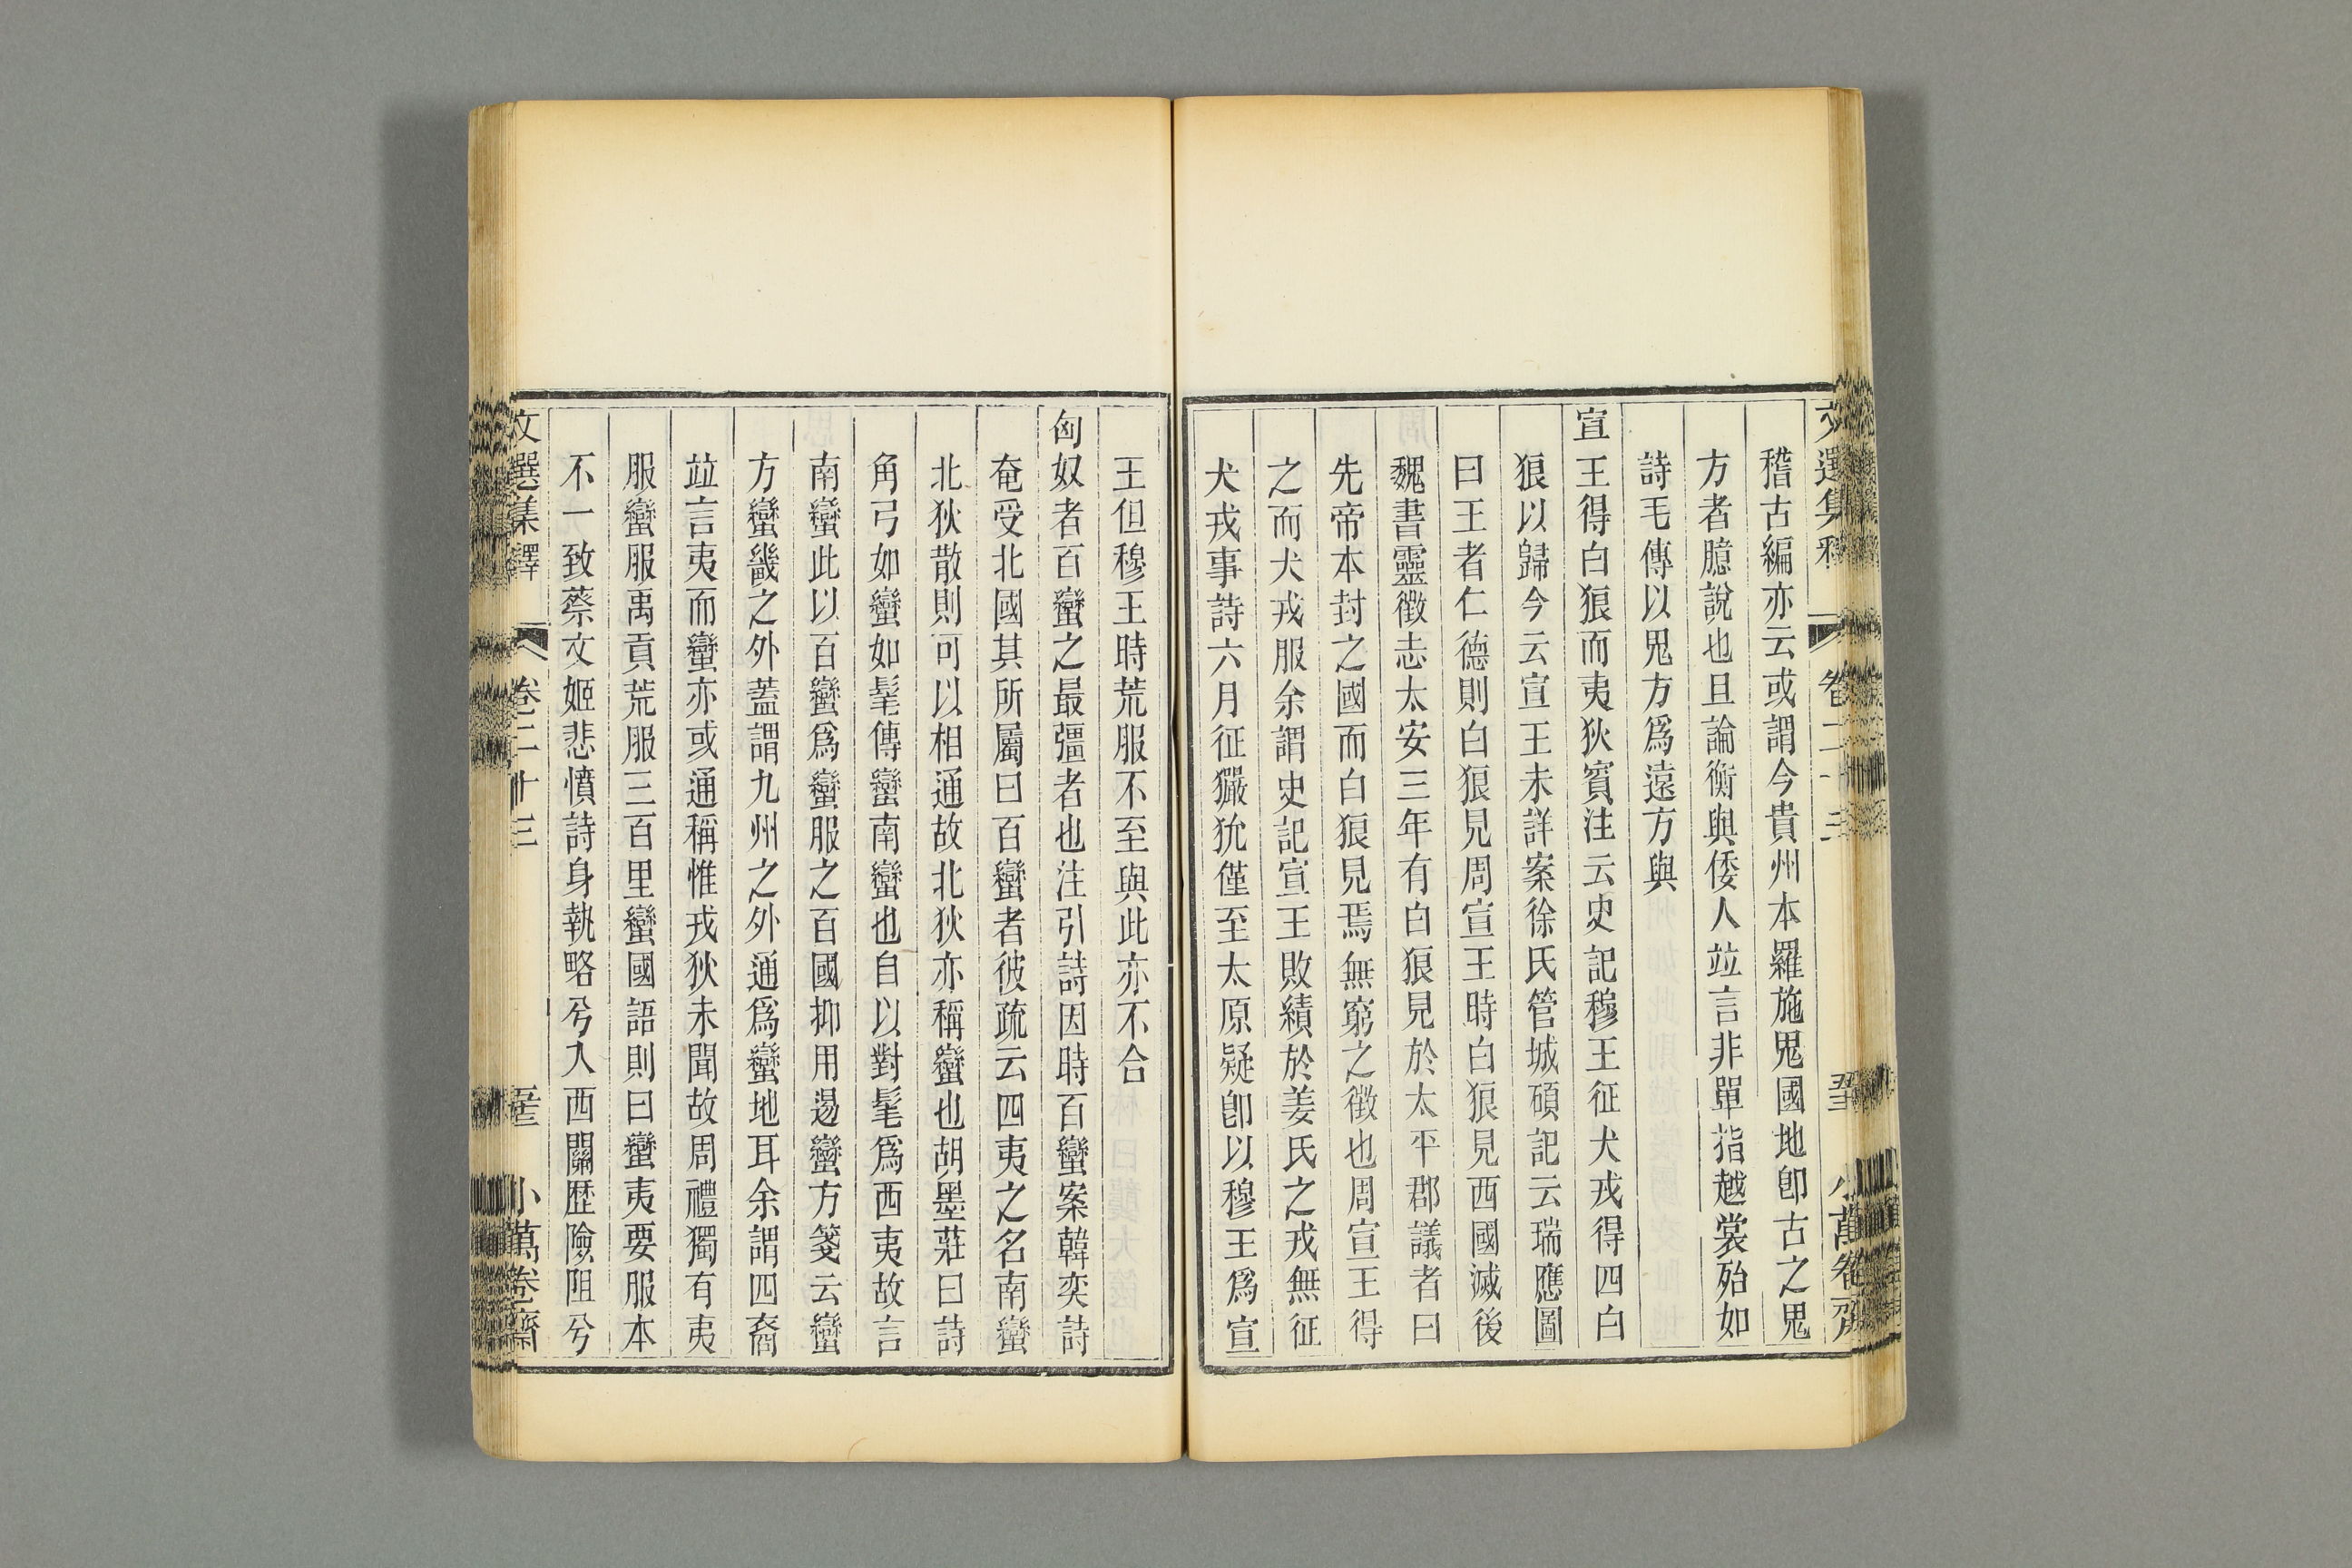 文選集釋 卷二十三 小萬卷齋
稽古編亦云或謂今貴州本羅施鬼國地卽古之鬼
方者臆說也且論衡與倭人竝言非單指越裳殆如
詩毛傳以鬼方爲遠方與
宣王得白狼而夷狄賓注云史記穆王征犬戎得四白
狼以歸今云宣王未詳案徐氏管城碩記云瑞應圖
曰王者仁德則白狼見周宣王時白狼見西國滅後
魏書靈徵志太安三年有白狼見於太平郡議者曰
先帝本封之國而白狼見焉無窮之徵也周宣王得
之而犬戎服余謂史記宣王敗績於姜氏之戎無征
犬戎事詩六月征玁狁僅至太原疑卽以穆王爲宣
王但穆王時荒服不至與此亦不合
匈奴者百蠻之最彊者也注引詩因時百蠻案韓奕詩
奄受北國其所屬曰百蠻者彼疏云四夷之名南蠻
北狄散則可以相通故北狄亦稱蠻也胡墨莊曰詩
角弓如蠻如髦傳蠻南蠻也自以對髦爲西夷故言
南蠻此以百蠻爲蠻服之百國抑用逷蠻方箋云蠻
方蠻畿之外蓋謂九州之外通爲蠻地耳余謂四裔
竝言夷而蠻亦或通稱惟戎狄未聞故周禮獨有夷
服蠻服禹貢荒服三百里蠻國語則曰蠻夷要服本
不一致蔡文姬悲憤詩身執略兮入西關歷險阻兮
文選集釋 卷二十三 小萬卷齋